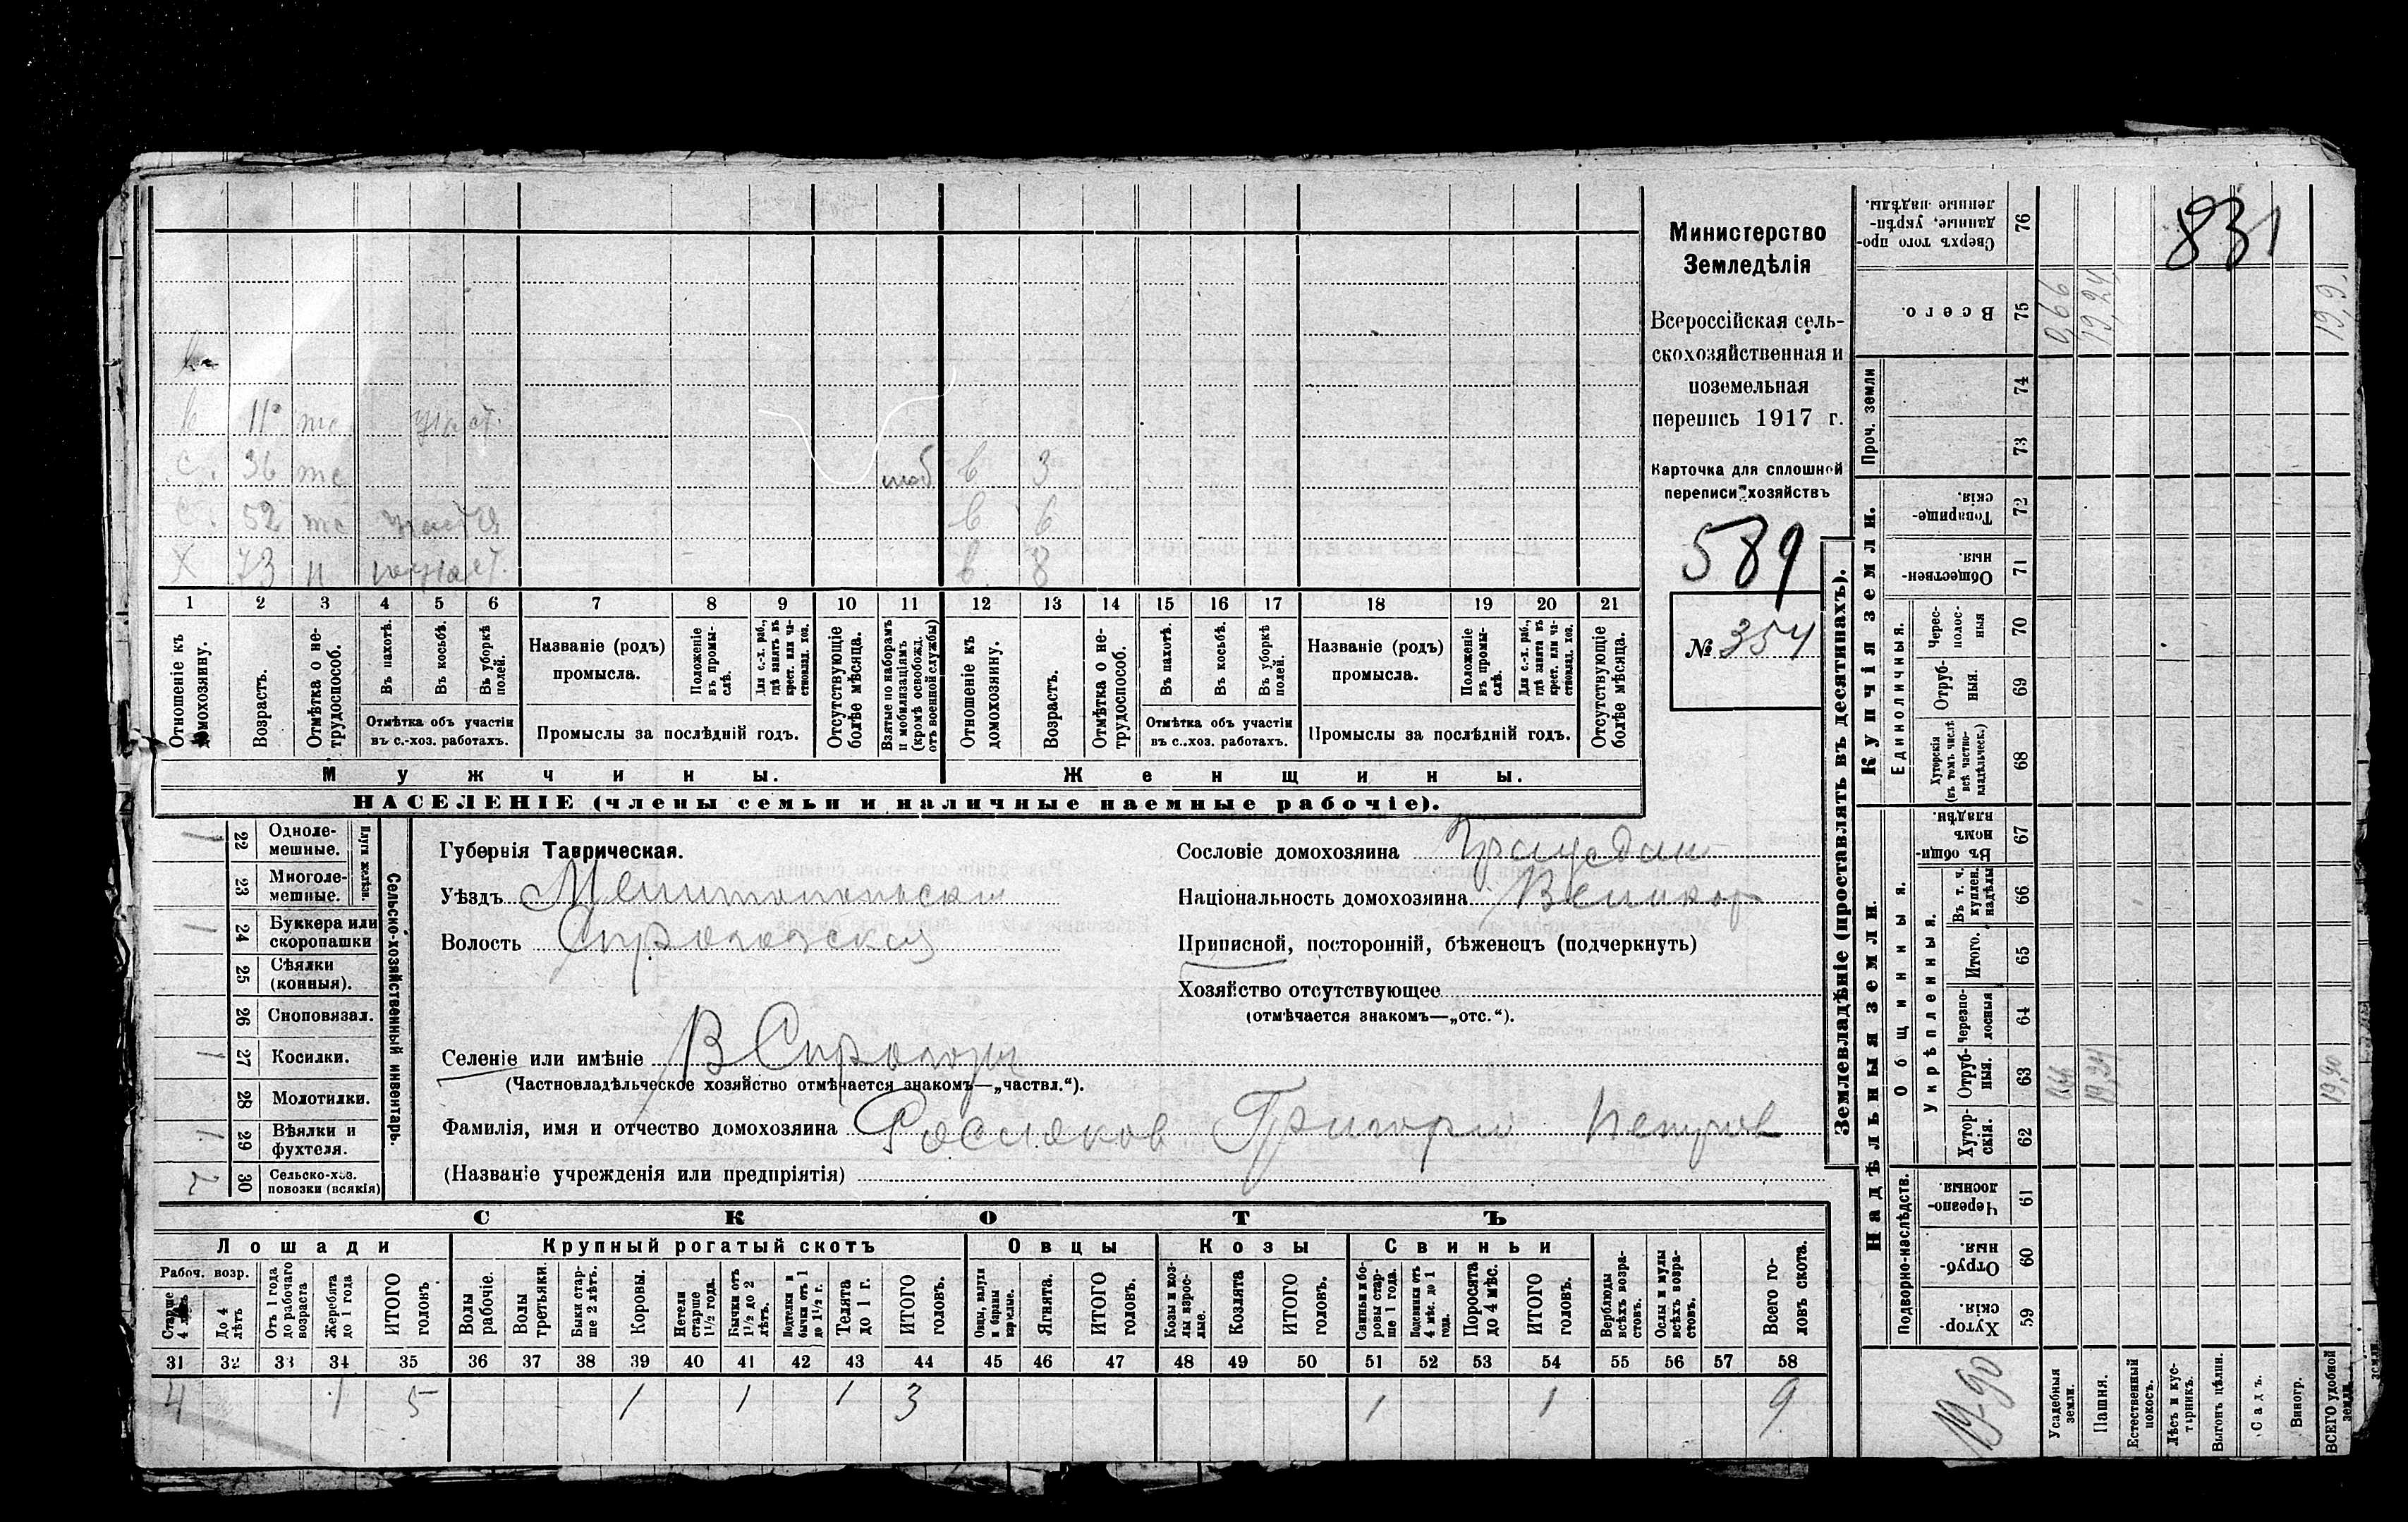 831
Министерство
Земледѣлія
Всероссійская сель-
скохозяйственная и
поземельная
перепись 1917 г.
Карточка для сплошной
переписи хозяйствъ
589
№ 354
11 тс
с. 36 тс моб в 3
с. 52 тс в 6
X 73 п в 8
1 2 3 4 5 6 7 8 9 10 11 12 13 14 15 16 17 18 19 20 21
Отношеніе къ домохозяину.
Возрастъ.
Отмѣтка о не-трудоспособ.
Въ пахотѣ.
Въ косьбѣ.
Въ уборкѣ полей.
Отмѣтка объ участіи
въ с.-хоз. работахъ.
Названіе (родъ)
промысла.
Положеніе въ промы-слѣ.
Для с.-х. раб., гдѣ занятъ въ крест. или ча-стновлад. хоз.
Промыслы за послѣдній годъ.
Отсутствующіе болѣе мѣсяца.
Взятые по наборамъ и мобилизаціямъ (кромѣ освобожд. отъ военной службы)
Отношеніе къ домохозяину.
Возрастъ.
Отмѣтка о не-трудоспособ.
Въ пахотѣ.
Въ косьбѣ.
Въ уборкѣ полей.
Отмѣтка объ участіи
въ с.-хоз. работахъ.
Названіе (родъ)
промысла.
Положеніе въ промы-слѣ.
Для с.-х. раб., гдѣ занята въ крест. или ча-стновлад. хоз.
Промыслы за послѣдній годъ.
Отсутствующіе болѣе мѣсяца.
Мужчины.
Женщины.
НАСЕЛЕНІЕ (члены семьи и наличные наемные рабочіе).
Сельско-хозяйственный инвентарь.
Плуги желѣзн.
1 22 Одноле-мешные.
23 Многоле-мешные.
1 24 Буккера или скоропашки
25 Сѣялки (конныя).
26 Сноповязал.
1 27 Косилки.
28 Молотилки.
1 29 Вѣялки и фухтеля.
2 30 Сельско-хоз. повозки (всякія)
Губернія Таврическая.
Уѣздъ Мелитопольскій
Волость
Селеніе или имѣніе В Сирогозы
(Частновладѣльческое хозяйство отмѣчается знакомъ—„частвл.“).
Фамилія, имя и отчество домохозяина Григорій Петров
(Названіе учрежденія или предпріятія)
Сословіе домохозяина
Національность домохозяина Великор
Приписной, посторонній, бѣженецъ (подчеркнуть)
Хозяйство отсутствующее
(отмѣчается знакомъ—„отс.“).
СКОТЪ
Лошади
Крупный рогатый скотъ
Овцы
Козы
Свиньи
Рабоч. возр.
Старше 4 лѣтъ
До 4 лѣтъ
Отъ 1 года до рабочаго возраста
Жеребята до 1 года
ИТОГО головъ.
Волы рабочіе.
Волы третьяки.
Быки стар-ше 2 лѣтъ.
Коровы.
Нетели старше 1½ года.
Бычки отъ 1½ до 2 лѣтъ.
Подтелки и бычки отъ 1 до 1½ г.
Телята до 1 г.
ИТОГО головъ.
Овцы, валухи и бараны взрослые.
Ягнята.
ИТОГО головъ.
Козы и коз-лы взрос-лые.
Козлята
ИТОГО головъ.
Свиньи и бо-ровы стар-ше 1 года.
Подсвинки отъ 4 мѣс. до 1 года.
Поросята до 4 мѣс.
ИТОГО головъ.
Верблюды всѣхъ возра-стовъ.
Ослы и мулы всѣхъ возра-стовъ.
Всего го-ловъ скота.
31 32 33 34 35 36 37 38 39 40 41 42 43 44 45 46 47 48 49 50 51 52 53 54 55 56 57 58
4 1 5 1 1 1 3 1 1 9
Землевладѣніе (проставлять въ десятинахъ).
Купчія земли.
Надѣльныя земли.
Проч. земли
Единоличныя.
Общинныя.
Укрѣпленныя.
Подворно-наслѣдств.
Сверхъ того про-данные, укрѣп-ленные надѣлы. 76
Всего. 75
74
73
Товарище-скія. 72
Обществен-ныя 71
Черес-полос-ныя 70
Отруб-ныя. 69
Хуторскія (въ томъ числѣ всѣ частно-владѣльческ.) 68
Въ общи-номъ владѣн. 67
Въ т. ч. куплен. надѣлы 66
Итого. 65
Черезпо-лосныя 64
Отруб-ныя. 63
Хутор-скія. 62
Черезпо-лосныя. 61
Отруб-ныя 60
Хутор-скія. 59
0,66
19,24
19,9
19,24
19,90
19-90
Усадебныя земли.
Пашня.
Естественный покосъ.
Лѣсъ и кус-тарникъ.
Выгонъ цѣлин.
Садъ.
Виногр.
ВСЕГО удобной земли.